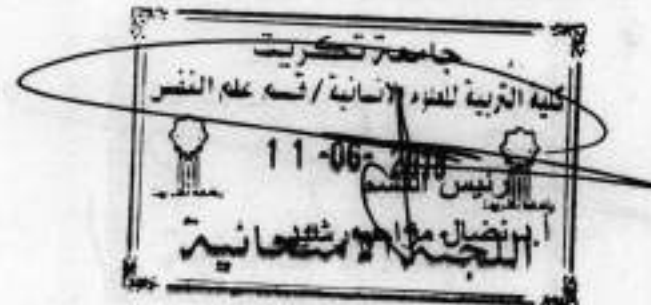 جامعة تكريت
كلية التربية للعلوم الانسانية / قسم علم النفس
11 -06-
رئيس القسم
أ. نضال
اللجنة الامتحانية